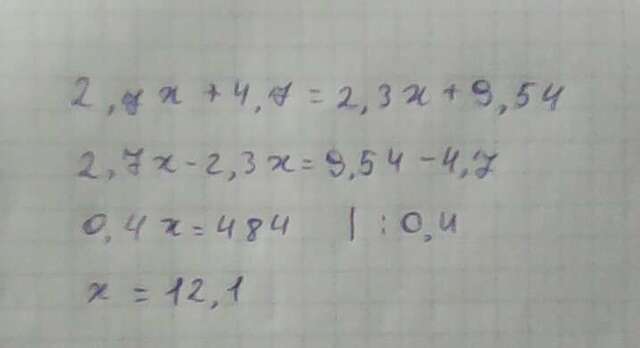 2,7x + 4,7 = 2,3x + 9,54
2,7x - 2,3x = 9,54 - 4,7
0,4x = 484 | : 0,4
x = 12,1